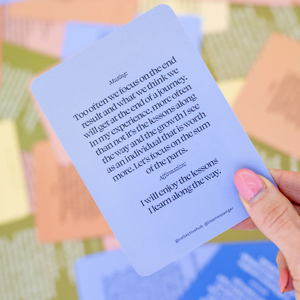 Musing:
Too often we focus on the end
result and what we think we
will get at the end of a journey.
In my experience, more often
than not it's the lessons along
the way and the growth I see
as an individual that is worth
more. Let's focus on the sum
of the parts.
Affirmation:
I will enjoy the lessons
I learn along the way.
@collectivehub